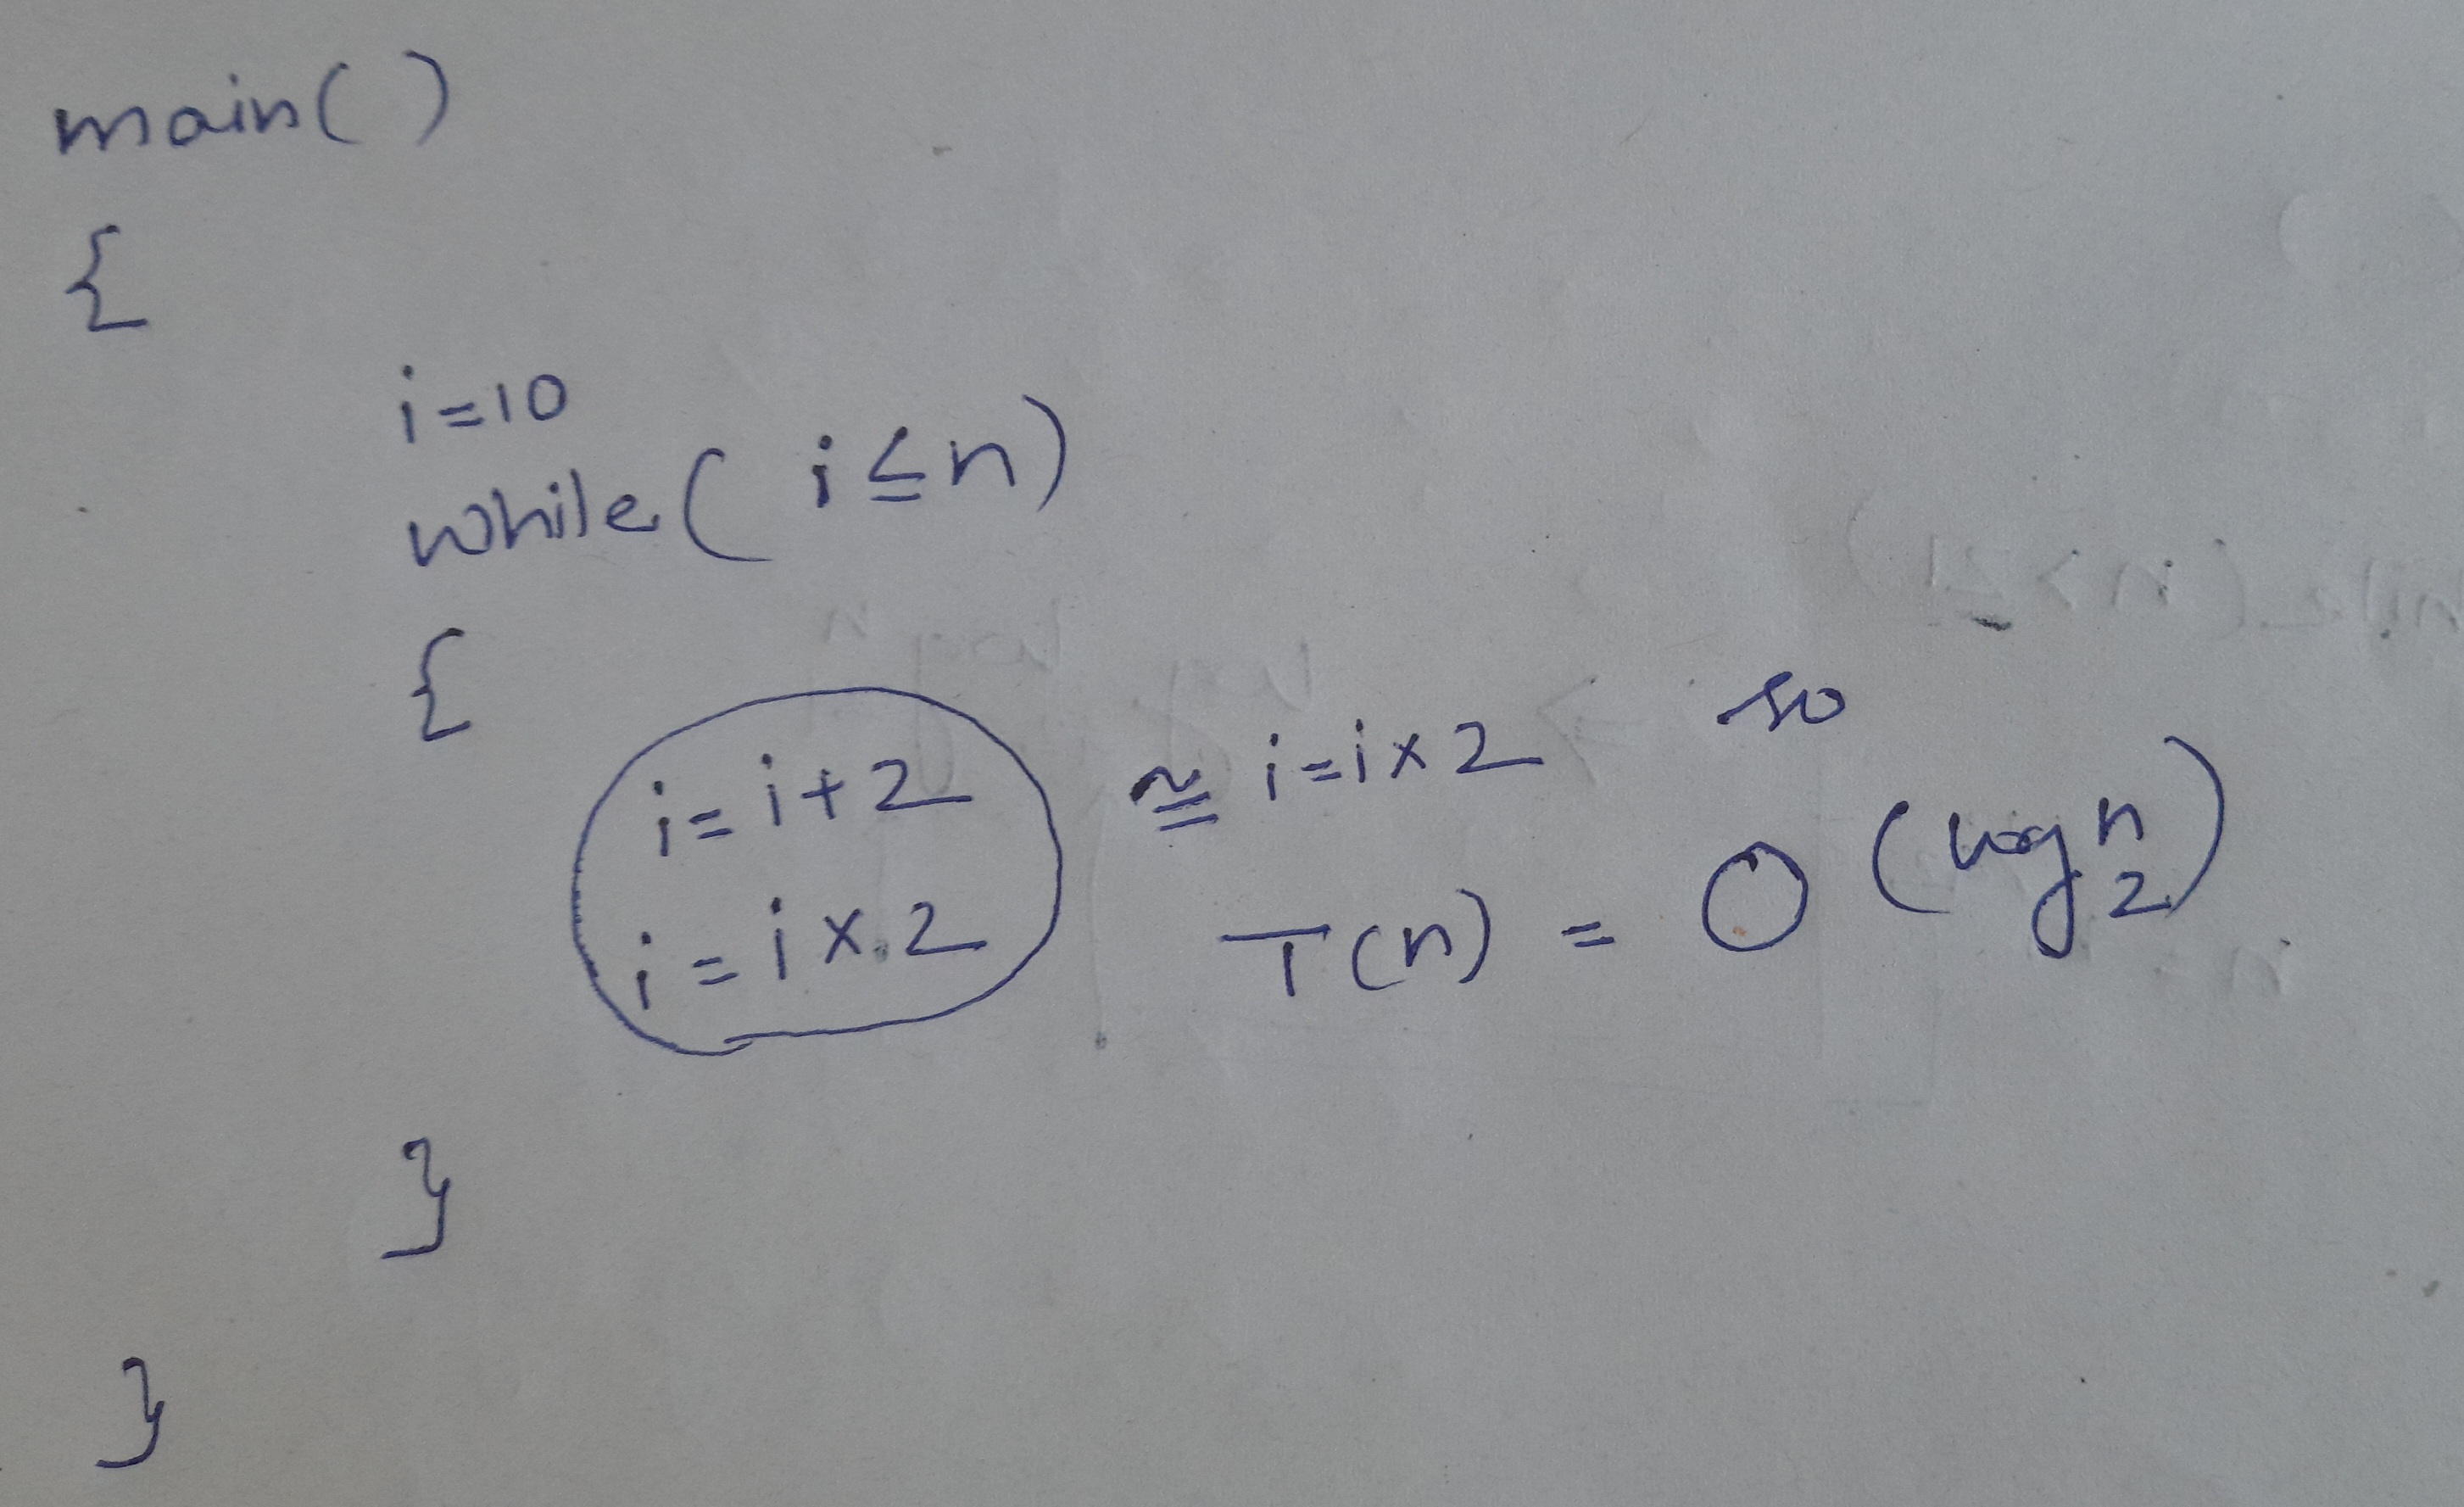 main( )
{
i=10
while( i≤n)
{
i=i+2 ≅ i=i×2 so
i=i×2 T(n) = O(log₂ⁿ)
}
}